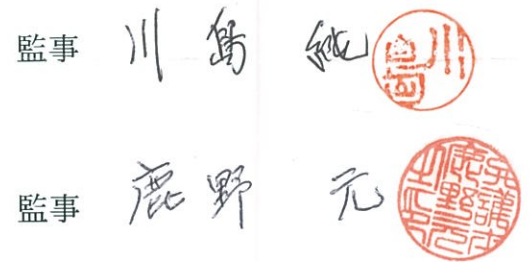 監事 川島 純
川島
監事 鹿野 元